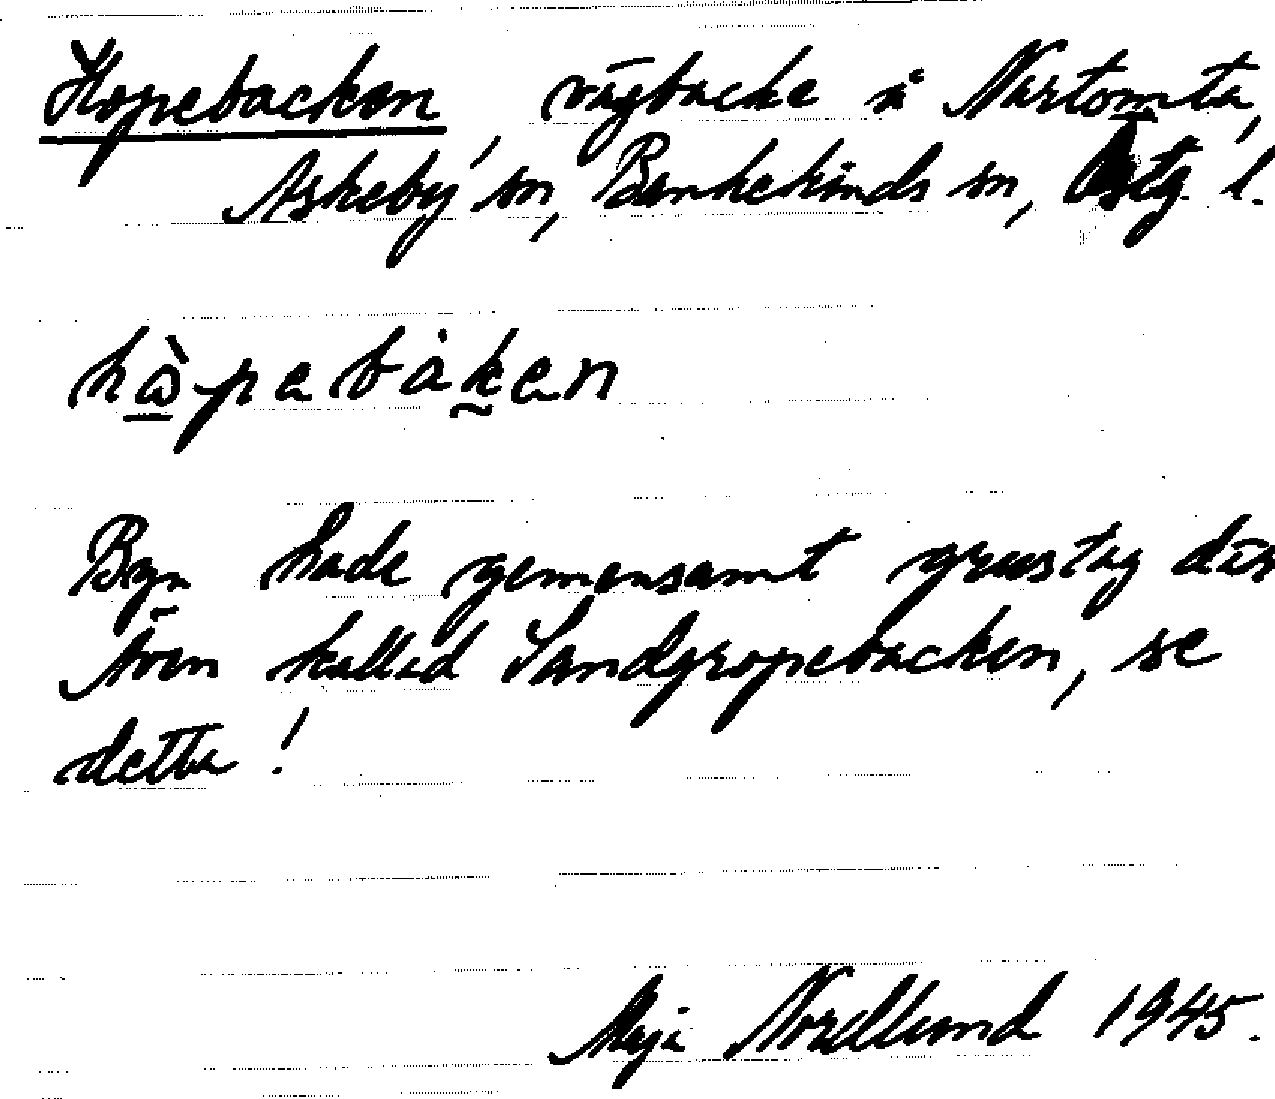 Hopebacken, vägbacke i Nartomta,
Askeby sn, Bankekinds sn, Östg. l.
hå̀pebaken
Byn hade gemensamt grustag där
även kallad Sandgropebacken, se
detta!
Maja Nordlund 1945.